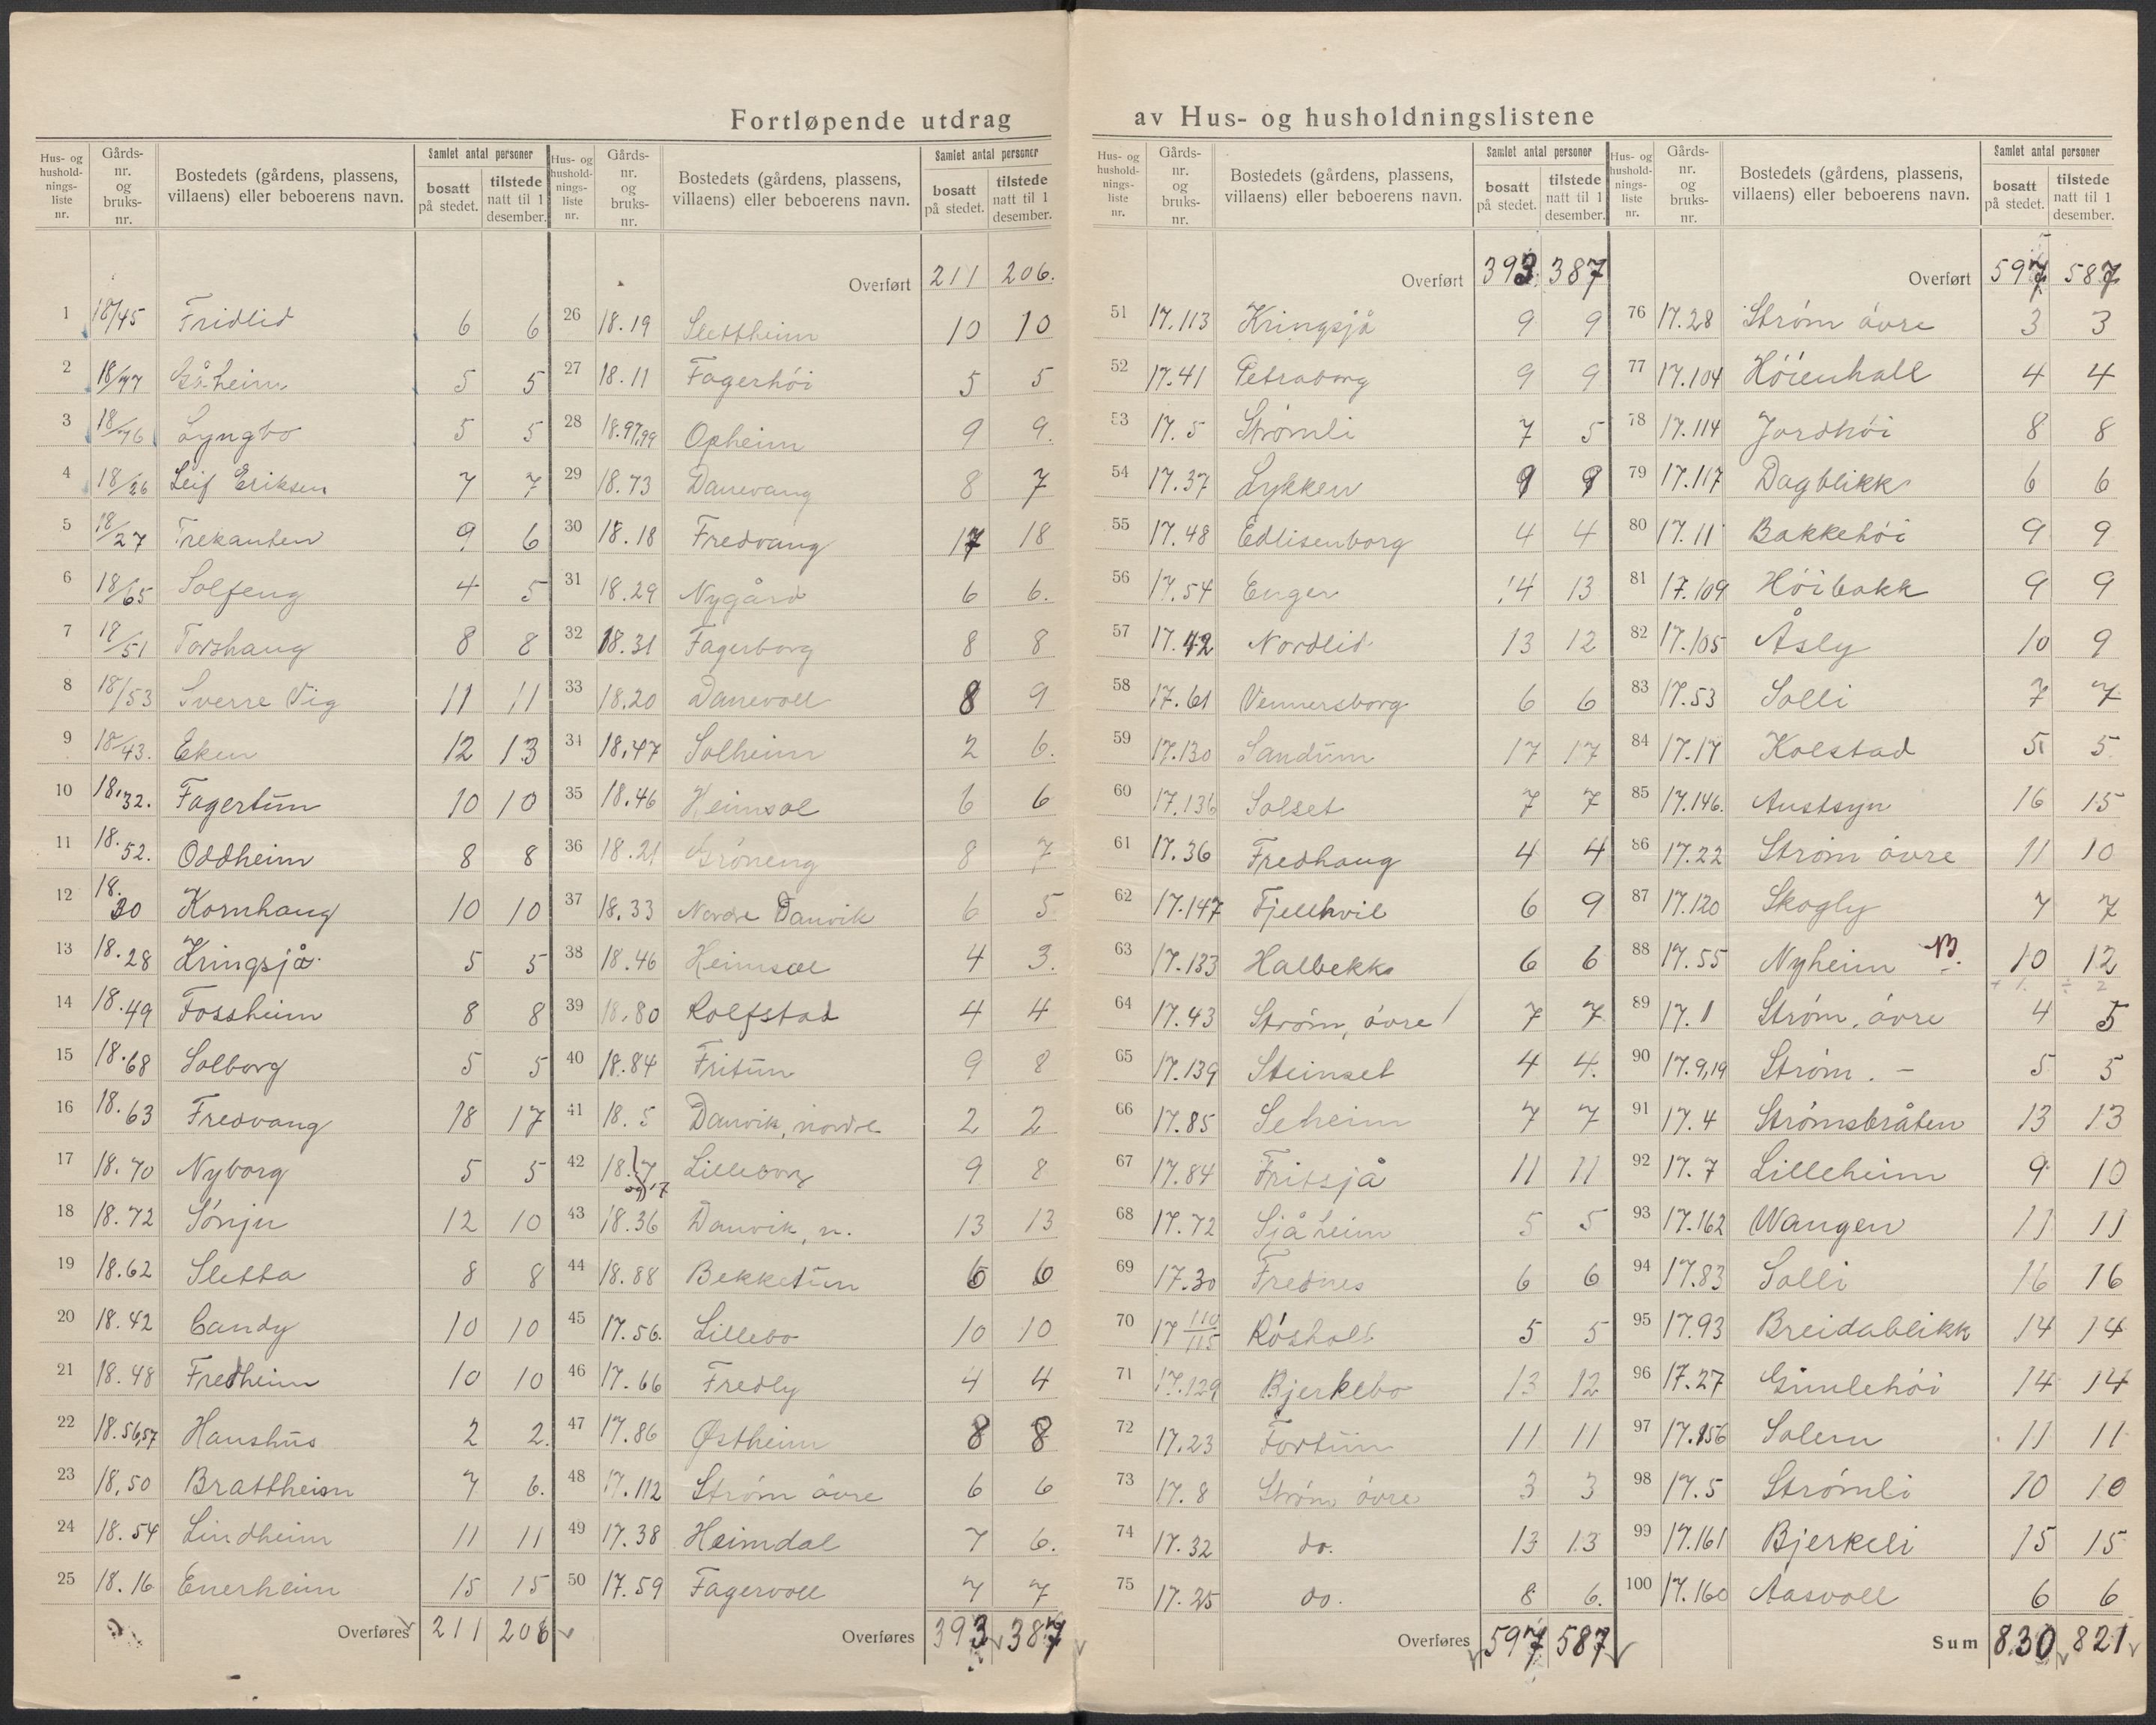 Fortløpende utdrag av Hus- og husholdningslistene
Hus- og husholdnings-liste nr. | Gårds-nr. og bruks-nr. | Bostedets (gårdens, plassens, villaens) eller beboerens navn. | Samlet antal personer bosatt på stedet. | tilstede natt til 1 desember.
1 18/45 Fridlid 6 6
2 18/77 Gåheim 5 5
3 18/76 Lyngbo 5 5
4 18/26 Leif Eriksen 7 7
5 18/27 Trekanten 9 6
6 18/65 Solfeng 4 5
7 18/51 Torshaug 8 8
8 18/53 Sverre Vig 11 11
9 18/43. Eken 12 13
10 18.32. Fagertun 10 10
11 18.52. Oddheim 8 8
12 18.30 Kornhaug 10 10
13 18.28 Kringsjå 5 5
14 18.49 Fossheim 8 8
15 18.68 Solborg 5 5
16 18.63 Fredvang 18 17
17 18.70 Nyborg 5 5
18 18.72 Sónju 12 10
19 18.62 Sletta 8 8
20 18.42 Candy 10 10
21 18.48 Fredheim 10 10
22 18.56,57 Hanshus 2 2.
23 18,50 Brattheim 7 6.
24 18.54 Lindheim 11 11
25 18.16 Enerheim 15 15
Overføres 211 206
Hus- og husholdnings-liste nr. | Gårds-nr. og bruks-nr. | Bostedets (gårdens, plassens, villaens) eller beboerens navn. | Samlet antal personer bosatt på stedet. | tilstede natt til 1 desember.
Overført 211 206.
26 18.19 Slettheim 10 10
27 18.11 Fagerhói 5 5
28 18.97,99 Opheim 9 9.
29 18.73 Danevang 8 7
30 18.18 Fredvang 17 18
31 18.29 Nygård 6 6.
32 18.31 Fagerborg 8 8
33 18.20 Danevoll 8 9
34 18.47 Solheim 2 6.
35 18.46 Heimsol 6 6
36 18.21 Gróneng 8 7
37 18.33 Nordre Danvik 6 5
38 18.46 Heimsol 4 3.
39 18.80 Rolfstad 4 4
40 18.84 Fritun 9 8
41 18.5 Danvik, nordre 2 2
42 18.7 Lilleborg 9 8
43 18.36 Danvik, n. 13 13
44 18.88 Bekketun 6 6
45 17.56. Lillebo 10 10
46 17.66 Fredly 4 4
47 17.86 Østheim 8 8
48 17.112 Stróm óvre 6 6
49 17.38 Heimdal 7 6.
50 17.59 Fagervoll 7 7
Overføres 393 387
Hus- og husholdnings-liste nr. | Gårds-nr. og bruks-nr. | Bostedets (gårdens, plassens, villaens) eller beboerens navn. | Samlet antal personer bosatt på stedet. | tilstede natt til 1 desember.
Overført 393 387
51 17.113 Kringsjå 9 9
52 17.41 Petraborg 9 9
53 17.5 Strómli 7 5
54 17.37 Lykken 9 9
55 17.48 Edlisenborg 4 4
56 17.54 Enger 14 13
57 17.42 Nordlid 13 12
58 17.61 Vennersborg 6 6
59 17.130 Sandum 17 17
60 17.136 Solset 7 7
61 17.36 Fredhaug 4 4
62 17.147 Fjellhvil 6 9
63 17.133 Halbekk 6 6
64 17.43 Stróm, óvre 7 7
65 17.139 Steinset 4 4.
66 17.85 Seheim 7 7
67 17.84 Fritsjå 11 11
68 17.72 Sjåheim 5 5
69 17.30 Frednes 6 6
70 17 110/115 Rósholt 5 5
71 17.129 Bjerkebo 13 12
72 17.23 Fortun 11 11
73 17.8 Stróm óvre 3 3
74 17.32 do. 13 13
75 17.25 do. 8 6.
Overføres 597 587
Hus- og husholdnings-liste nr. | Gårds-nr. og bruks-nr. | Bostedets (gårdens, plassens, villaens) eller beboerens navn. | Samlet antal personer bosatt på stedet. | tilstede natt til 1 desember.
Overført 597 587
76 17.28 Stróm óvre 3 3
77 17.104 Hóienhall 4 4
78 17.114 Jordhói 8 8
79 17.117 Dagblikk 6 6
80 17.11 Bakkehói 9 9
81 17.109 Hóibakk 9 9
82 17.105 Åsly 10 9
83 17.53 Solli 7 7
84 17.17 Kolstad 5 5
85 17.146. Austsyn 16 15
86 17.22 Stróm óvre 11 10
87 17.120 Skogly 7 7
88 17.55 Nyheim 10 12
89 17.1 Stróm, óvre 4 5
90 17.9,19 Stróm. – 5 5
91 17.4 Strómsbråten 13 13
92 17.7 Lilleheim 9 10
93 17.162 Wangen 11 11
94 17.83 Solli 16 16
95 17.93 Breidablikk 14 14
96 17.27 Gimlehói 14 14
97 17.156 Solem 11 11
98 17.5 Strómli 10 10
99 17.161 Bjerkeli 15 15
100 17.160 Aasvoll 6 6
Sum 830 821